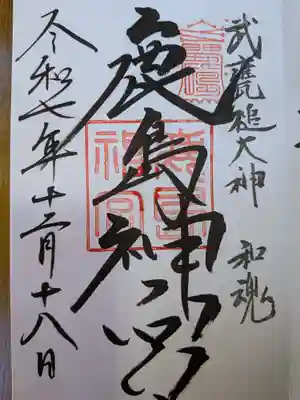 武甕槌大神 和魂
鹿島神宮
鹿島
神宮
令和七年十二月十八日